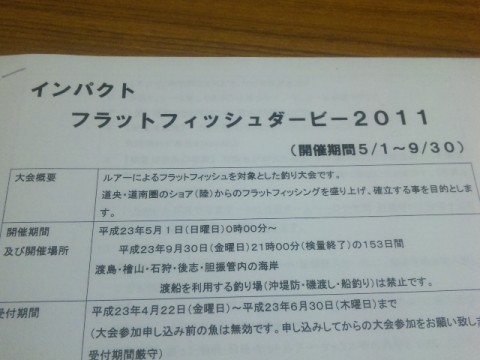 インパクト
フラットフィッシュダービー２０１１
（開催期間５/１～９/３０）
大会概要
ルアーによるフラットフィッシュを対象とした釣り大会です。
道央・道南圏のショア(陸)からのフラットフィッシングを盛り上げ、確立する事を目的としま
す。
開催期間
及び開催場所
平成23年5月1日(日曜日)0時00分～
平成23年9月30日(金曜日)21時00分(検量終了)の153日間
渡島・檜山・石狩・後志・胆振管内の海岸
渡船を利用する釣り場(沖堤防・磯渡し・船釣り)は禁止です。
受付期間
平成23年4月22日(金曜日)～平成23年6月30日(木曜日)まで
(大会参加申し込み前の魚は無効です。申し込みしてからの大会参加をお願い致しま
受付期間厳守)